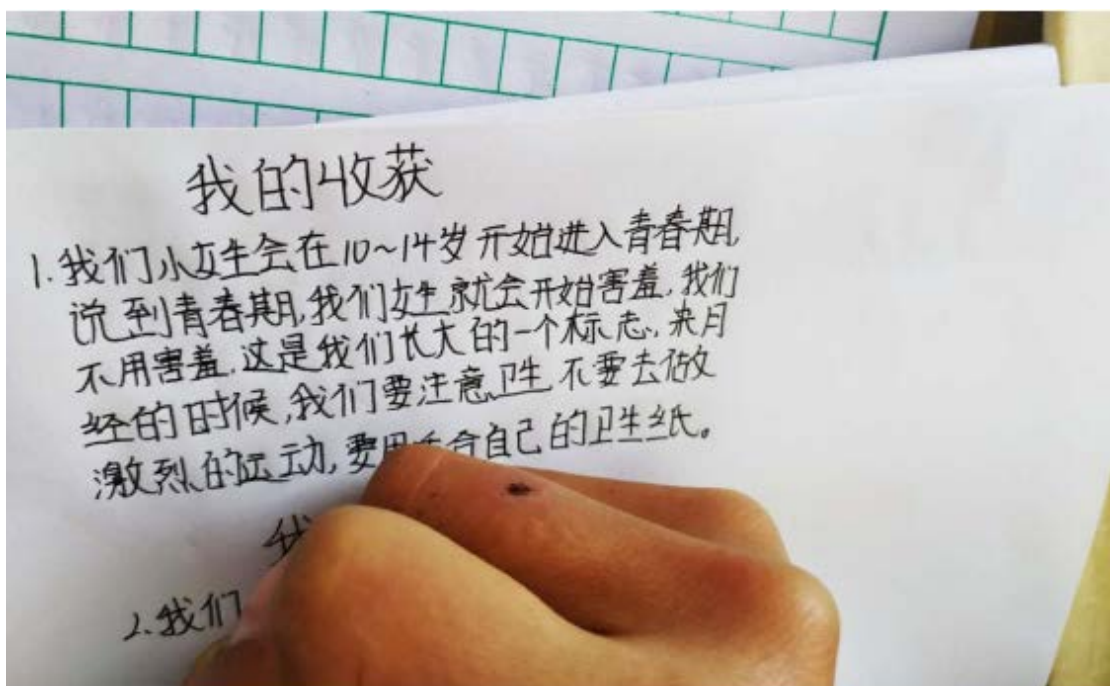 我的收获
1.我们小女生会在10~14岁开始进入青春期,
说到青春期,我们女生就会开始害羞,我们
不用害羞,这是我们长大的一个标志,来月
经的时候,我们要注意卫生不要去做
激烈的运动,要用合自己的卫生纸。
我
2.我们